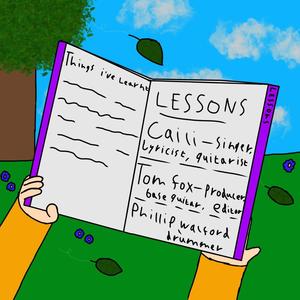 Things i've learnt
LESSONS
Caili - Singer,
Lyricist, guitarist
Tom fox - Producer,
base guitar, editor
Phillip walford
drummer
LESSONS